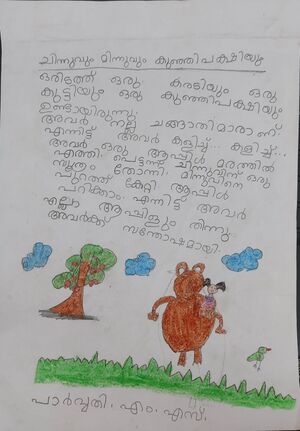 ചിന്നുവും മിന്നുവും കുഞ്ഞിപക്ഷിയും
ഒരിടത്ത് ഒരു കരടിയും ഒരു
കുട്ടിയും ഒരു കുഞ്ഞിപക്ഷിയും
ഉണ്ടായിരുന്നു.
അവർ നല്ല ചങ്ങാതിമാരാണ്
എന്നിട്ട് അവർ കളിച്ച് കളിച്ച്...
അവർ ഒരു ആപ്പിൾ മരത്തിൽ
എത്തി. പെട്ടന്ന് ചിന്നുവിന് ഒരു
സൂത്രം തോന്നി. മിന്നുവിനെ
പുറത്ത് കേറ്റി ആപ്പിൾ
പറിക്കാം. എന്നിട്ട് അവർ
എല്ലാ ആപ്പിളും തിന്നു
അവർക്ക് സന്തോഷമായി.
പാർവ്വതി. എം. എസ്.